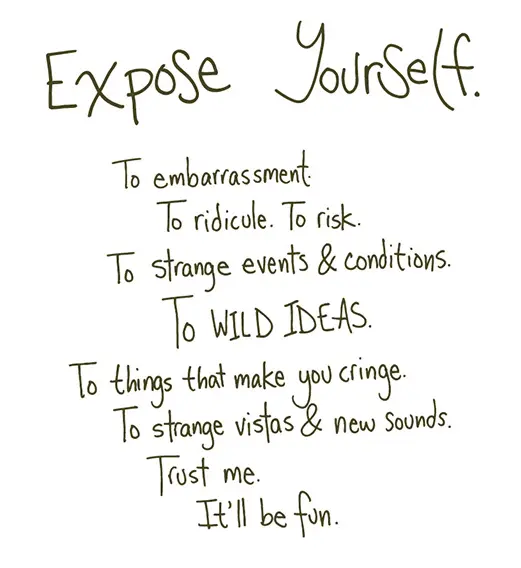 Expose Yourself.
To embarrassment.
To ridicule. To risk.
To strange events & conditions.
To WILD IDEAS.
To things that make you cringe.
To strange vistas & new sounds.
Trust me.
It'll be fun.